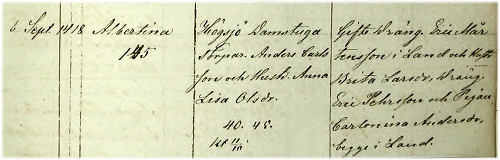 6 Sept. 14 18 Albertina
145
Högsjö Damstuga
Torpar. Anders Carls
son och Hust. Anna
Lisa Olsdr.
40. 45.
Gifte Dräng. Eric Mår
tensson i Land och Hust
Brita Larsdr, Dräng.
Eric Pehrsson och Pigan
Carlonina Andersdr,
begge i Land.